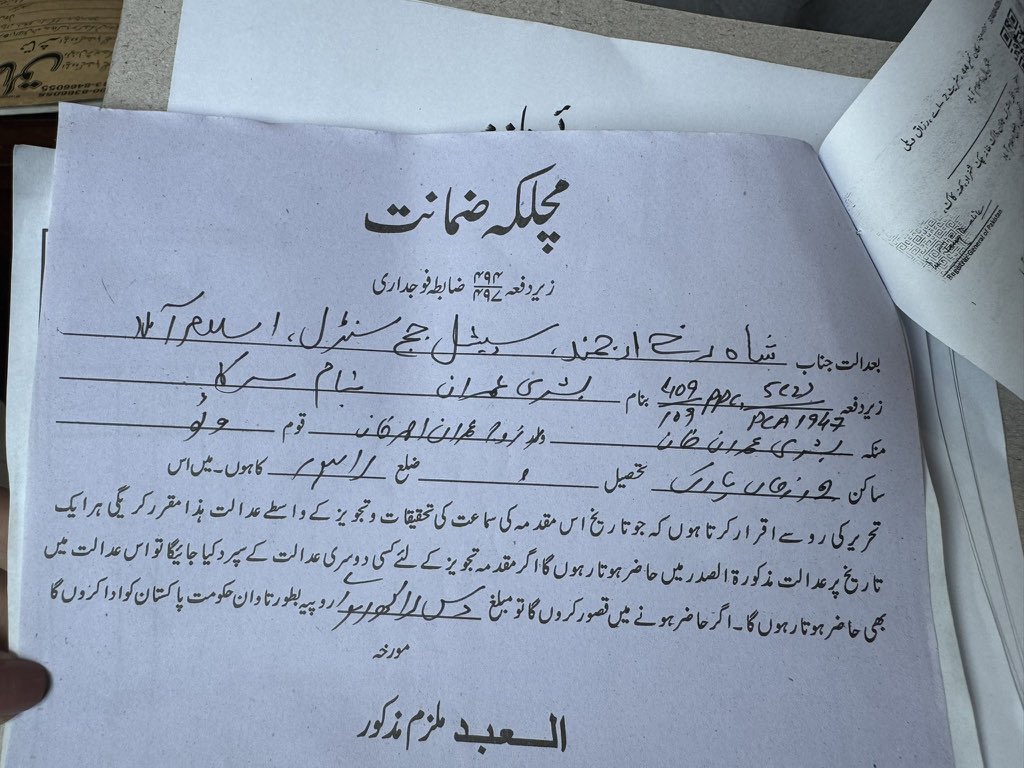 مچلکہ ضمانت
زیر دفعہ ۴۹۴/۴۹۷ ضابطہ فوجداری
بعدالت جناب شاہ رخ ارجمند، سپیشل جج سنٹرل، اسلام آباد
زیر دفعہ 409/109 PPC, 5(2)/PCA 1947 بنام بشریٰ عمران بنام سرکار
منکہ بشریٰ عمران خان ولد زوجہ عمران احمد خان قوم وٹو
ساکن زمان پارک تحصیل ضلع لاہور کا ہوں۔ میں اس
تحریر کی رو سے اقرار کرتا ہوں کہ جو تاریخ اس مقدمہ کی سماعت کی تحقیقات و تجویز کے واسطے عدالت ہذا مقرر کریگی ہر ایک
تاریخ پر عدالت مذکورۃ الصدر میں حاضر ہوتا رہوں گا اگر مقدمہ تجویز کے لئے کسی دوسری عدالت کے سپرد کیا جائیگا تو اس عدالت میں
بھی حاضر ہوتا رہوں گا۔ اگر حاضر ہونے میں قصور کروں گا تو مبلغ دس لاکھ روپیہ بطور تاوان حکومت پاکستان کو ادا کروں گا
مورخہ
العبد ملزم مذکور
Registrar General of Pakistan